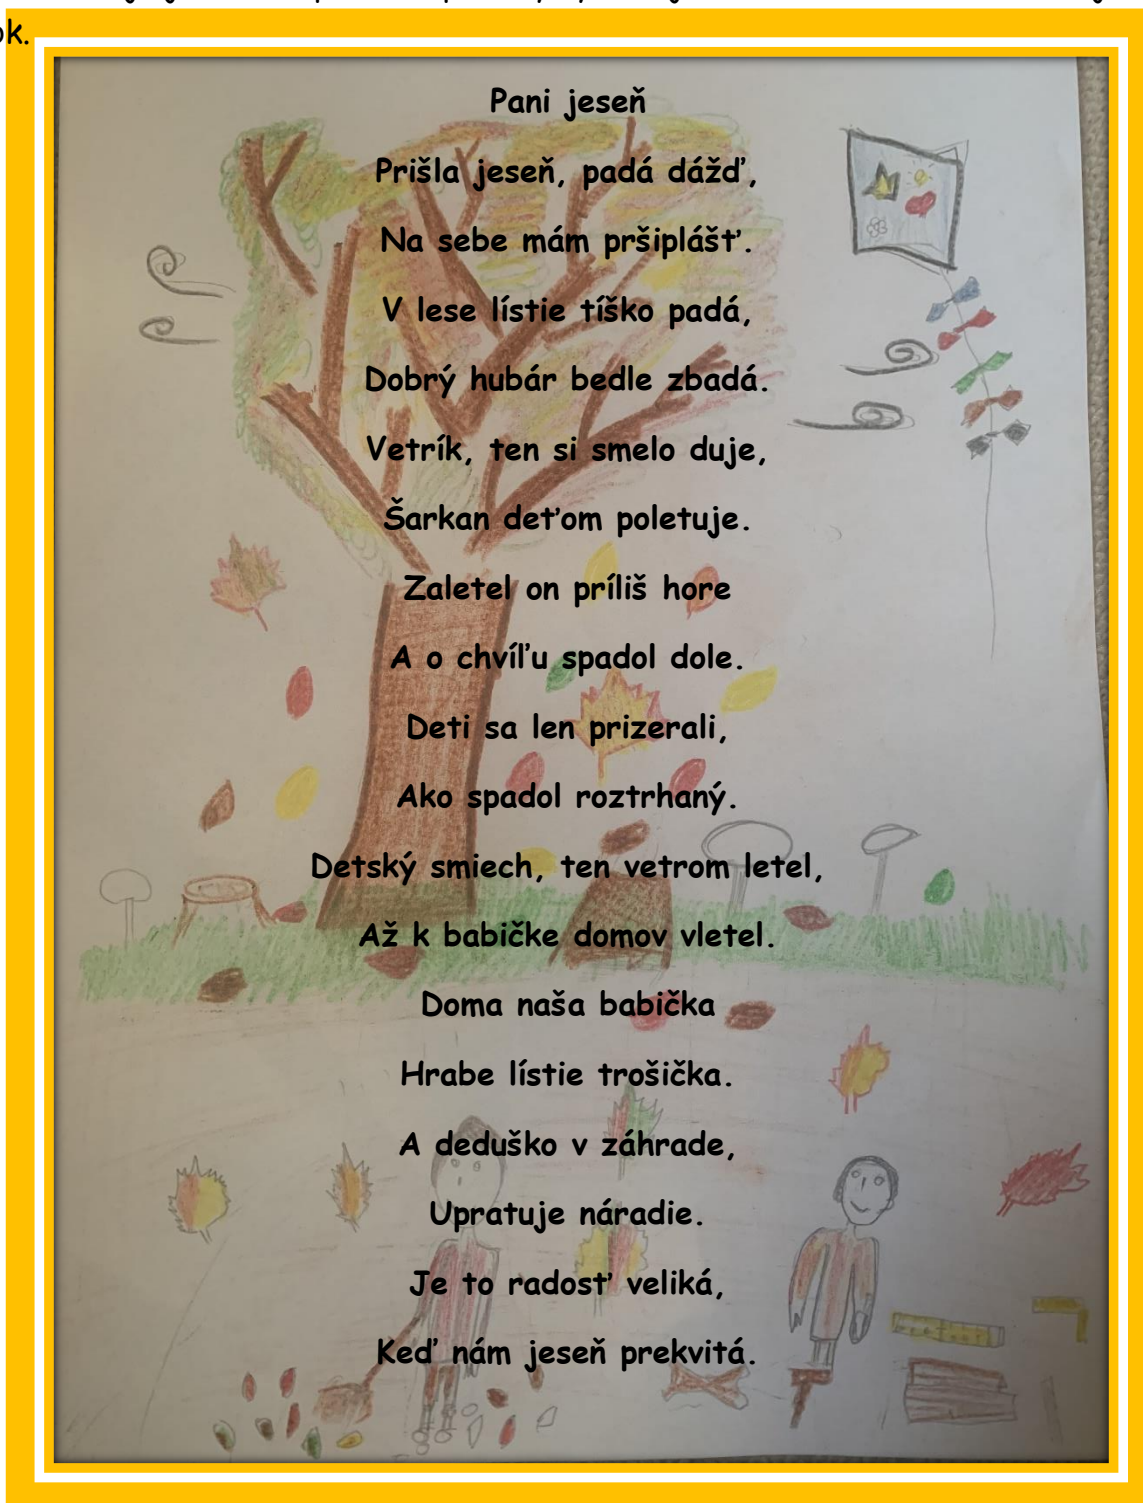 ok.
Pani jeseň
Prišla jeseň, padá dážď,
Na sebe mám pršiplášť.
V lese lístie tíško padá,
Dobrý hubár bedle zbadá.
Vetrík, ten si smelo duje,
Šarkan deťom poletuje.
Zaletel on príliš hore
A o chvíľu spadol dole.
Deti sa len prizerali,
Ako spadol roztrhaný.
Detský smiech, ten vetrom letel,
Až k babičke domov vletel.
Doma naša babička
Hrabe lístie trošička.
A deduško v záhrade,
Upratuje náradie.
Je to radosť veliká,
Keď nám jeseň prekvitá.